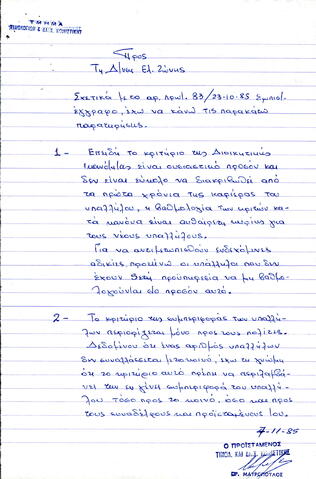 ΤΜΗΜΑ
Προς
Τη Δ/νση Ελ. Ζώνης
Σχετικά με το αρ. πρωτ. 83/23-10-85 Εμπιστ.
έγγραφο, έχω να κάνω τις παρακάτω
παρατηρήσεις.
1 - Επειδή το κριτήριο της Διοικητικής
Ικανότητας είναι ουσιαστικό προσόν και
δεν είναι εύκολο να διακριβωθεί από
τα πρώτα χρόνια της καριέρας του
υπαλλήλου, η βαθμολογία των κριτών κατά
κανόνα είναι αυθαίρετη κυρίως για
τους νέους υπαλλήλους.
Για να αντιμετωπισθούν ενδεχόμενες
αδικίες προτείνω οι υπάλληλοι που δεν
έχουν 5ετή προϋπηρεσία να μη βαθμο-
λογούνται στο προσόν αυτό.
2 - Το κριτήριο της συμπεριφοράς των υπαλλ-
ήλων περιορίζεται μόνο προς τους πολίτες.
Δεδομένου ότι ένας αριθμός υπαλλήλων
δεν συναλλάσσεται με το κοινό, έχω τη γνώμη
ότι το κριτήριο αυτό πρέπει να περιλαμβά-
νει την εν γένει συμπεριφορά του υπαλλή-
λου τόσο προς το κοινό, όσο και προς
τους συναδέλφους και προϊσταμένους του.
7-11-85
Ο ΠΡΟΪΣΤΑΜΕΝΟΣ
ΣΠ. ΜΑΥΡΟΠΟΥΛΟΣ